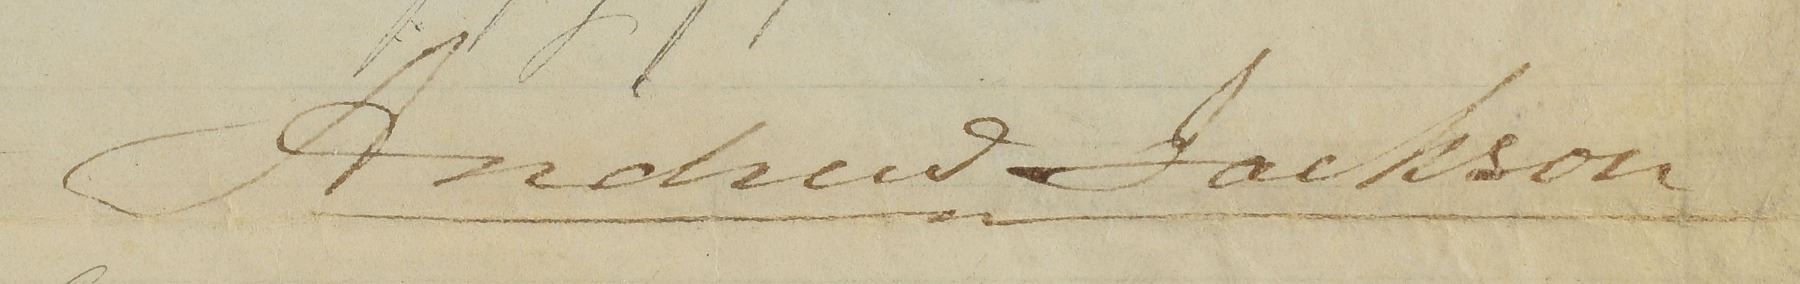 Andrew Jackson